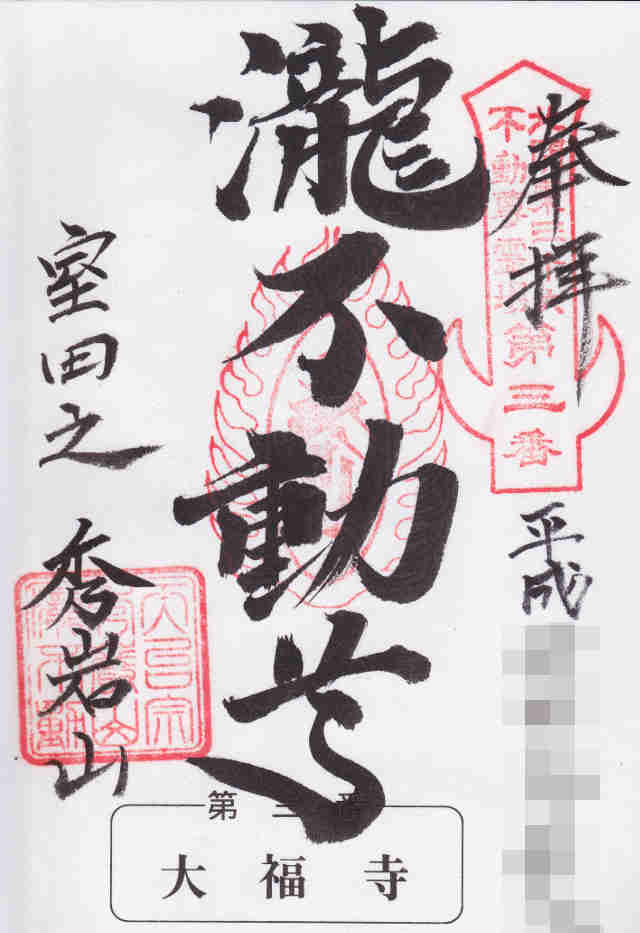 奉拝
不動尊霊場第三番
平成
瀧不動尊
室田之 秀岩山
第三番
大福寺